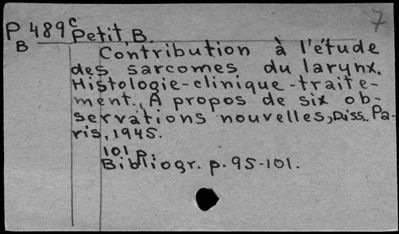 7
P 489c Petit, B.
B
Contribution à l'étude
des sarcomes du larynx.
Histologie-clinique-traite-
ment. A propos de six ob-
servations nouvelles, Diss. Pa-
ris, 1945.
101 p.
Bibliogr. p. 95-101.